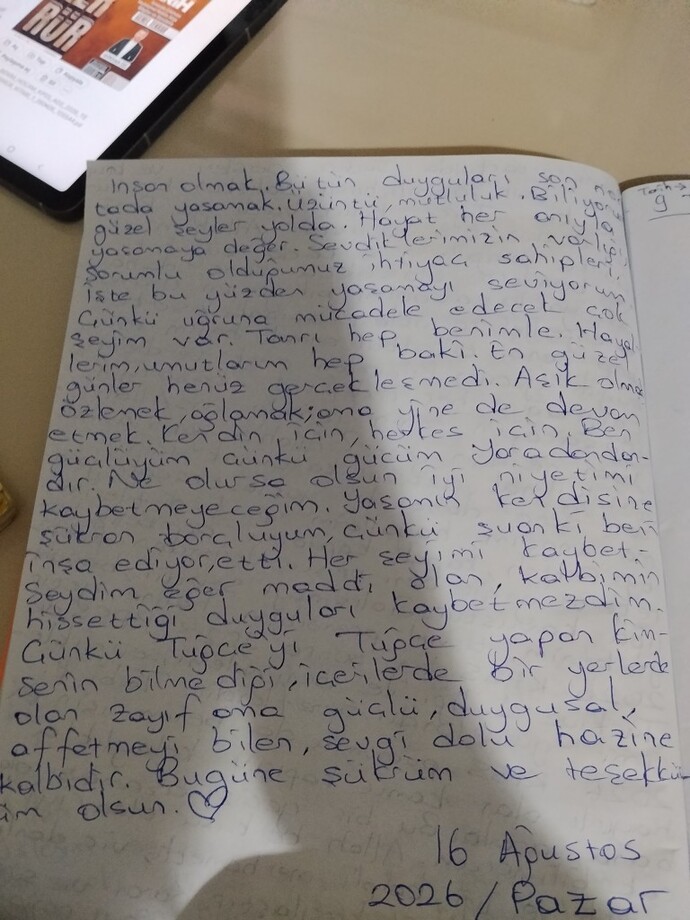 RÜR
İnsan olmak. Bütün duyguları son no
tada yaşamak. Üzüntü, mutluluk. Biliyorum
güzel şeyler yolda. Hayat her anıyla
yaşamaya değer. Sevdiklerimizin varlığı,
sorumlu olduğumuz ihtiyacı sahipleri.
İşte bu yüzden yaşamayı seviyorum.
Çünkü uğruna mücadele edecek çok
şeyim var. Tanrı hep benimle. Hayal
lerim, umutlarım hep baki. En güzel
günler henüz gerçekleşmedi. Aşık olmak
özlemek, ağlamak; ama yine de devam
etmek. Kendin için, herkes için. Ben
güçlüyüm çünkü gücüm yaradandan-
dır. Ne olursa olsun iyi niyetimi
kaybetmeyeceğim. Yaşamın kendisine
şükran borçluyum, çünkü şuanki beni
inşa ediyor, etti. Her şeyimi kaybet-
seydim eğer maddi olan, kalbimin
hissettiği duyguları kaybetmezdim.
Çünkü Tuğçe'yi Tuğçe yapan kim-
senin bilmediği, içerilerde bir yerlerde
olan zayıf ama güçlü, duygusal,
affetmeyi bilen, sevgi dolu hazine
kalbidir. Bugüne şükrüm ve teşekkü-
üm olsun. ♡
16 Ağustos
2026 / Pazar
Tarih→
9